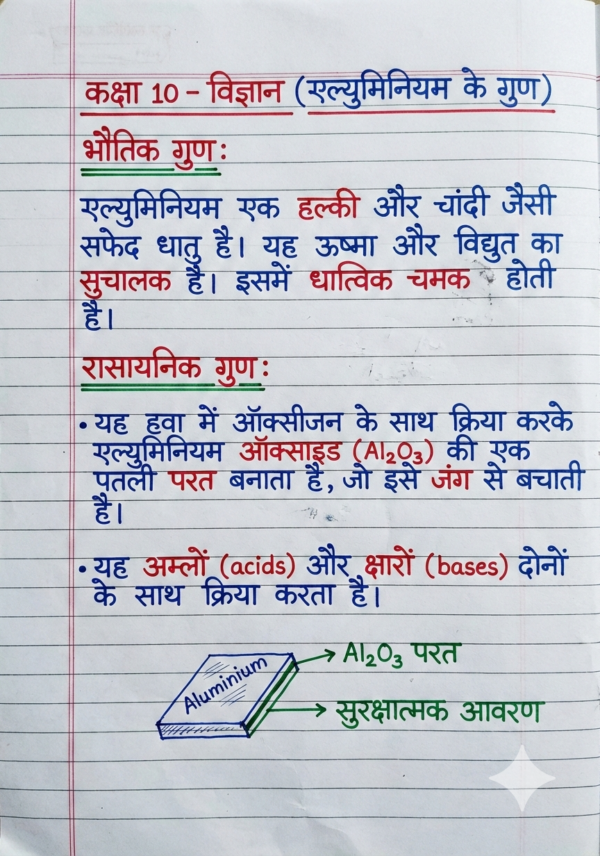 कक्षा 10 - विज्ञान (एल्युमिनियम के गुण)
भौतिक गुण:
एल्युमिनियम एक हल्की और चांदी जैसी
सफेद धातु है। यह ऊष्मा और विद्युत का
सुचालक है। इसमें धात्विक चमक होती
है।
रासायनिक गुण:
• यह हवा में ऑक्सीजन के साथ क्रिया करके
एल्युमिनियम ऑक्साइड (Al₂O₃) की एक
पतली परत बनाता है, जो इसे जंग से बचाती
है।
• यह अम्लों (acids) और क्षारों (bases) दोनों
के साथ क्रिया करता है।
Aluminium
Al₂O₃ परत
सुरक्षात्मक आवरण